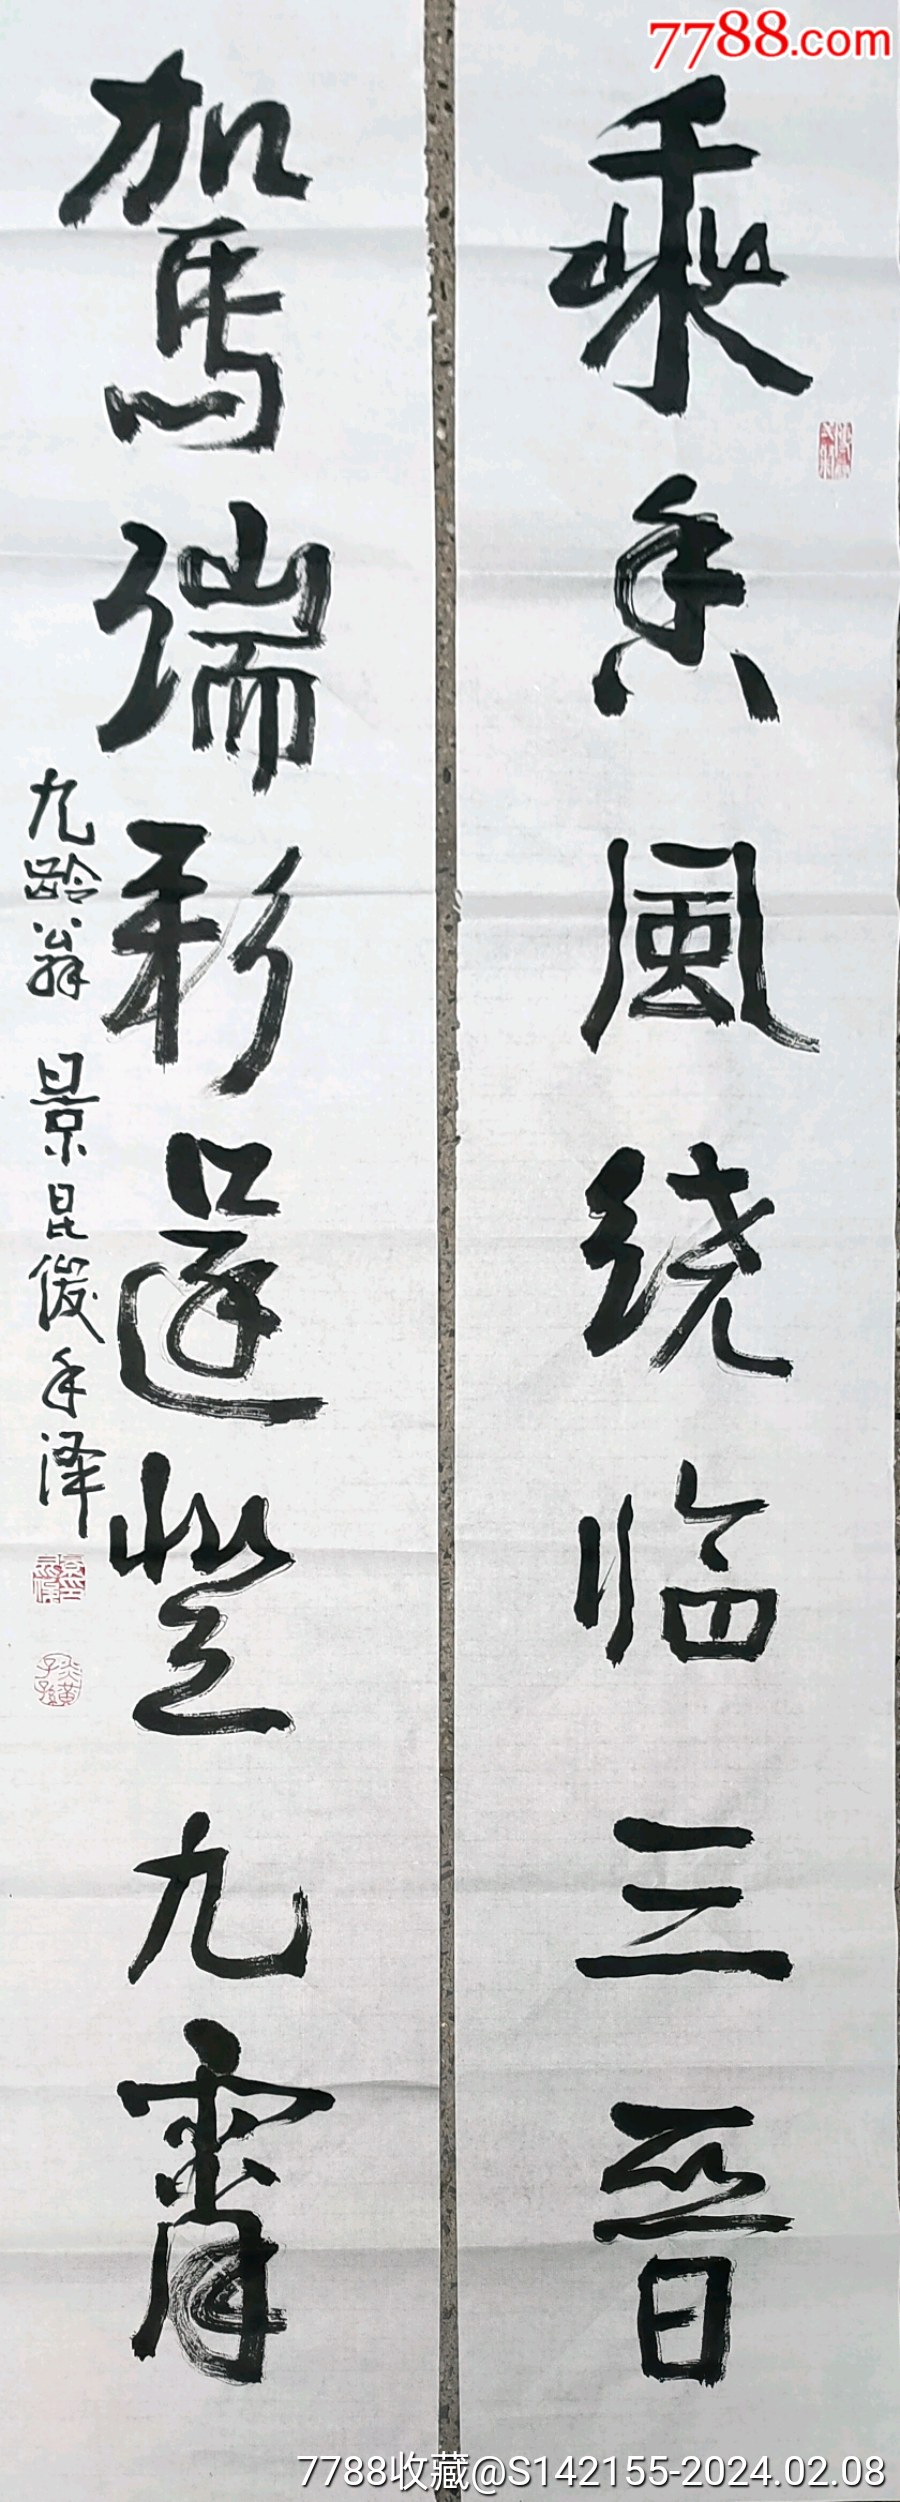 7788.com
乘香風绕临三晋
驾瑞彩還登九霄
九龄翁 景昆俊手泽
7788收藏@S142155-2024.02.08